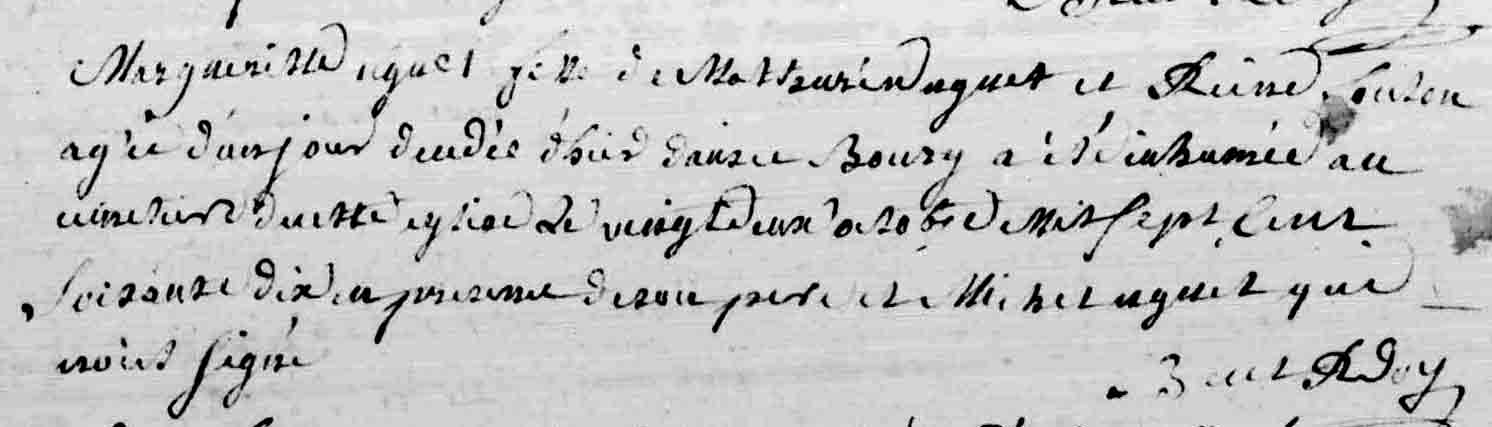 Margueritte uguet fille de Mathurin uguet et Reine Souton
agée d'un jour deudée d'hier dans ce Bourg a été inhumée au
cimetiere de cette eglise le vingt deux octobre Mil Sept Cent
Soixante dix en presence de son pere et Michel uguet qui
n'ont signé